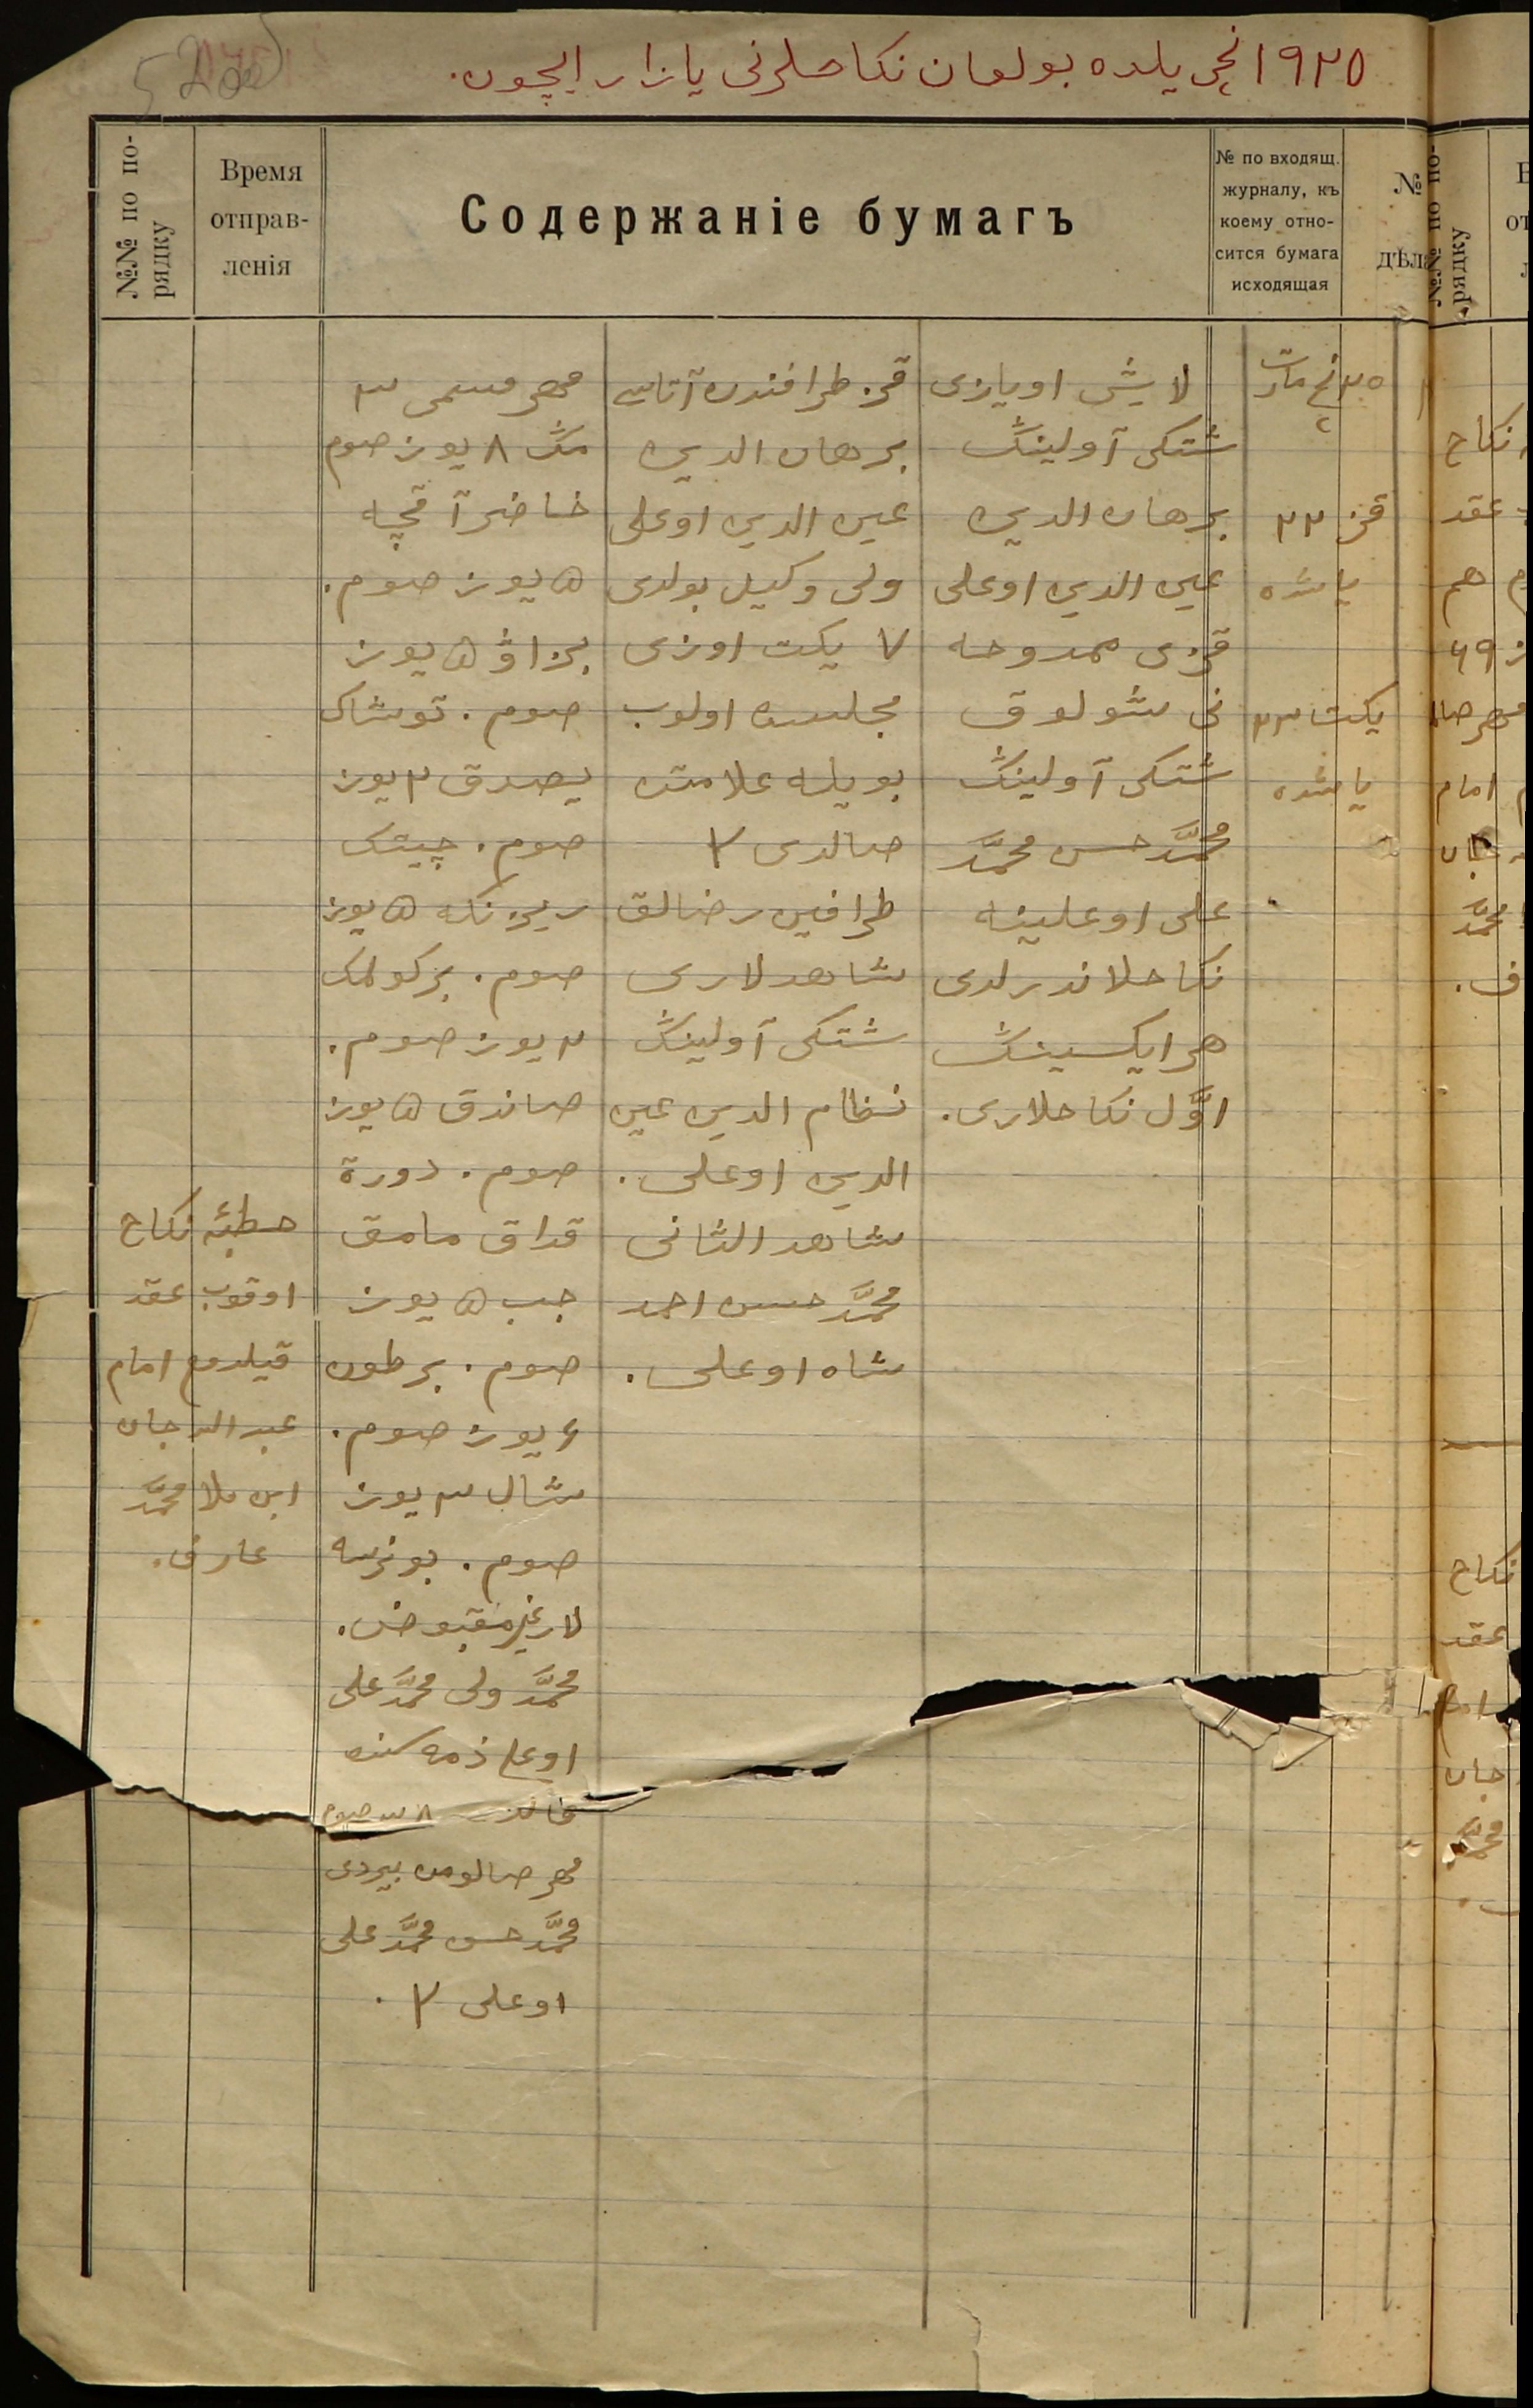 ١٩٢٥ نچی یلده بولغان نکاحلرنی یازار ایچون.
№№ по по-
рядку
Время
отправ-
ленія
Содержаніе бумагъ
№ по входящ.
журналу, къ
коему отно-
сится бумага
исходящая
№
дѣла
٢٥ نچی مارت
قز ٢٢
یاشده
یکت ٢٣
یاشده
لایش اویازی
شتکی آولینڭ
برهان الدین
عین الدین اوغلی
قزی ممدوحه
نی شولوق
شتکی آولینڭ
محمّد حسن محمّد
علی اوغلینه
نکاحلاندرلدی
هر ایکسینڭ
اوّل نکاحلاری.
قز طرافندن آتاسی
برهان الدین
عین الدین اوغلی
ولی وکیل بولدی
٧ یکت اوزی
مجلسده اولوب
بویله علامتن
صالدی ٧
طرافین رضالق
شاهدلاری
شتکی آولینڭ
نظام الدین عین
الدین اوغلی.
شاهد الثانی
محمّد حسن احمد
شاه اوغلی.
مهر مسمی ٣
مڭ ٨ یوز صوم
خاضر آقچه
۵ یوز صوم.
بزاوڤ ۵ یوز
صوم. توشاك
یصدق ٢ یوز
صوم. چیتك
ریزنکه ۵ یوز
صوم. بر کولمك
٢ یوز صوم.
صاندق ۵ یوز
صوم. دورة
قداق مامق
جب ۵ یوز
صوم. بر طون
٤ یوز صوم.
شال ٣ یوز
صوم. بو نرسه
لار غیر مقبوض.
محمّد ولی محمّد علی
اوغلی ذمه سنده
مهر صالومن بیردی
محمّد حسن محمّد علی
اوغلی ٧.
خطبئه نکاح
اوقوب عقد
قیلدم امام
عبد الله جان
ابن ملا محمّد
عارف.
نکاح
عقد
هم
امام
محمّد
نکاح
عقد
جان
محمّد